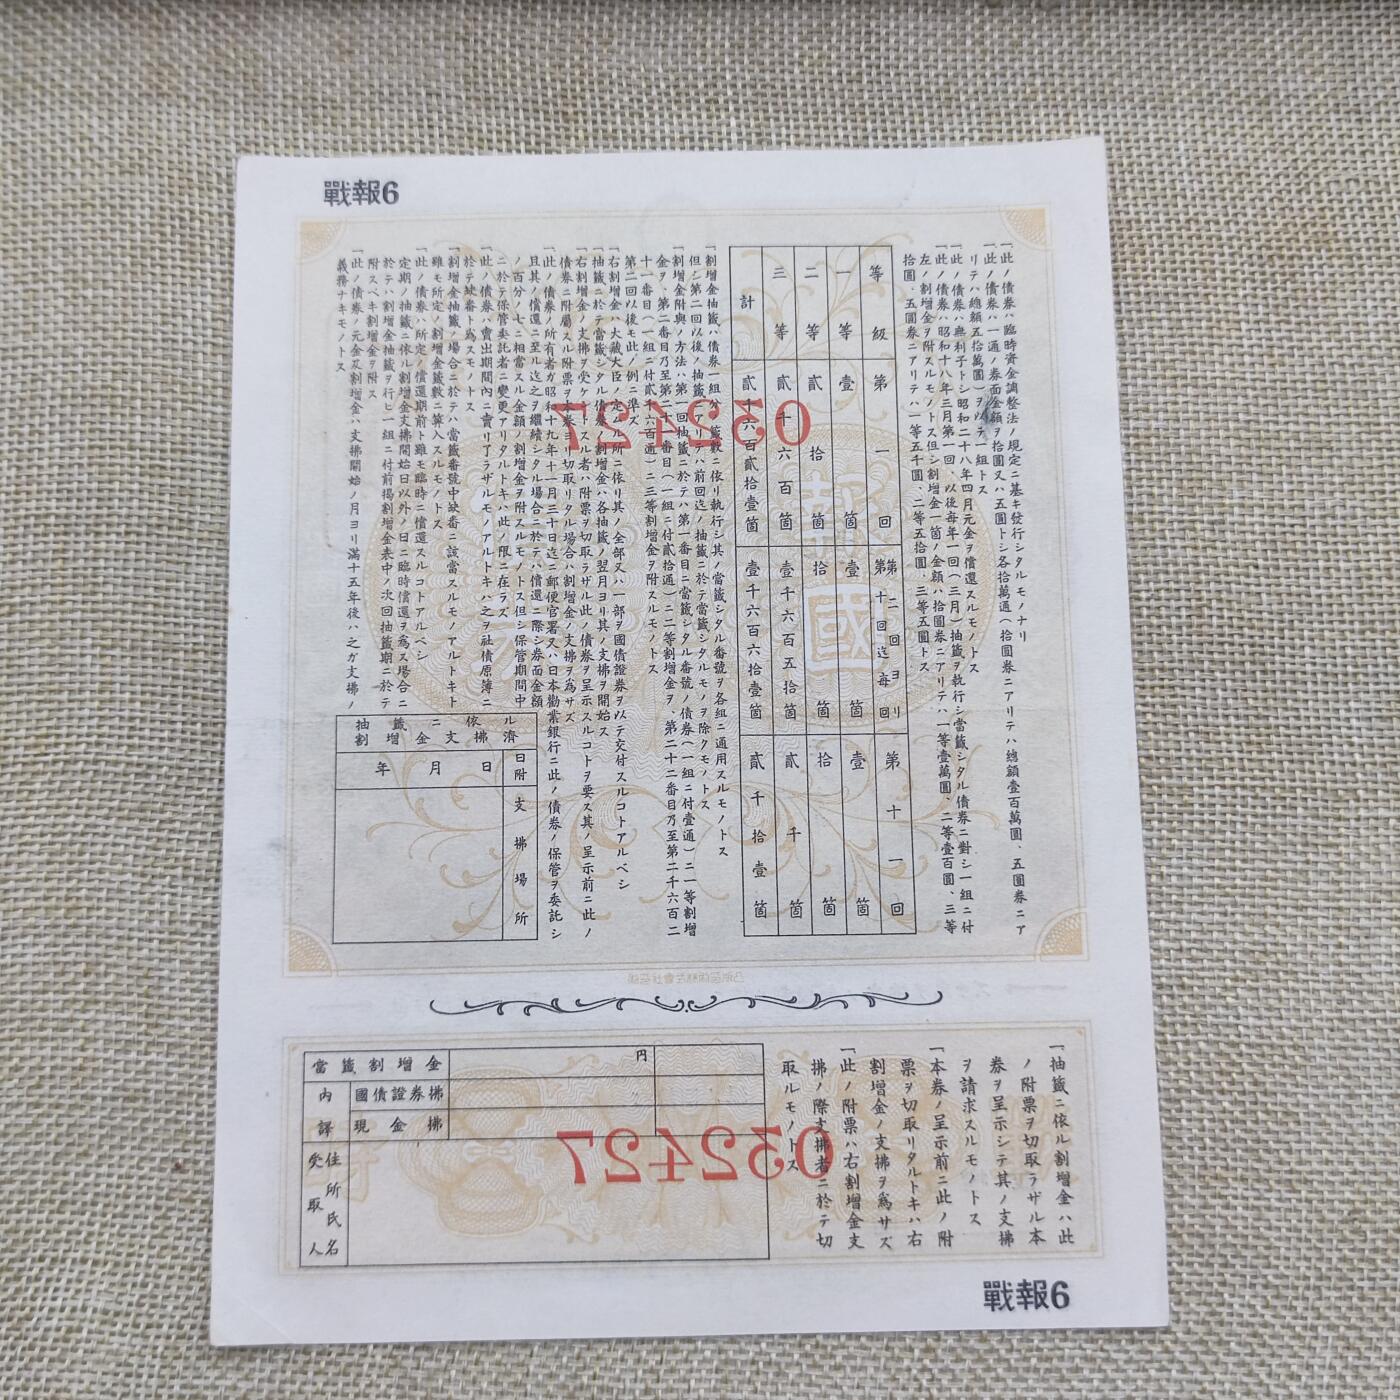 戰報6
「此ノ債券ハ臨時資金調整法ノ規定ニ基キ發行シタルモノナリ
「此ノ債券ハ一通ノ券面金額ヲ拾圓又ハ五圓トシ各拾萬通(拾圓券ニアリテハ總額壹百萬圓、五圓券ニア
リテハ總額五拾萬圓)ヲ以テ一組トス
「此ノ債券ハ無利子トシ昭和二十八年四月元金ヲ償還スルモノトス
「此ノ債券ハ昭和十八年三月第一回、以後每年一回(三月)抽籤ヲ執行シ當籤シタル債券ニ對シ一組ニ付
左ノ割增金ヲ附スルモノトス但シ割增金一箇ノ金額ハ拾圓券ニアリテハ一等壹萬圓、二等壹百圓、三等
拾圓、五圓券ニアリテハ一等五千圓、二等五拾圓、三等五圓トス
等級 第一回 第二回ヨリ第十回迄每回 第十一回
一等 壹箇 壹箇 壹箇
二等 貳拾箇 拾箇 拾箇
三等 貳千六百箇 壹千六百五拾箇 貳千箇
計 貳千六百貳拾壹箇 壹千六百六拾壹箇 貳千拾壹箇
「割增金抽籤ハ債券一組分ノ籤數ニ依リ執行シ其ノ當籤シタル番號ヲ各組ニ通用スルモノトス
但シ第二回以後ノ抽籤ニアリテハ前回迄ノ抽籤ニ於テ當籤シタルモノヲ除クモノトス
「割增金附與ノ方法ハ第一回抽籤ニ於テハ第一番目ニ當籤シタル番號ノ債券(一組ニ付壹通)ニ一等割增
金ヲ、第二番目乃至第二十一番目(一組ニ付貳拾通)ニ二等割增金ヲ、第二十二番目乃至第二千六百二
十一番目(一組ニ付貳千六百通)ニ三等割增金ヲ附スルモノトス
第二回以後モ此ノ例ニ準ズ
「右割增金ハ大藏大臣ノ定ムル所ニ依リ其ノ全部又ハ一部ヲ國債證券ヲ以テ交付スルコトアルベシ
「抽籤ニ於テ當籤シタル債券ノ割增金ハ各抽籤ノ翌月ヨリ其ノ支拂ヲ開始ス
右割增金ノ支拂ヲ受ケントスル者ハ附票ヲ切取ラザル此ノ債券ヲ呈示スルコトヲ要ス其ノ呈示前ニ此ノ
債券ニ附屬スル附票ヲ本券ヨリ切取リタル場合ハ割增金ノ支拂ヲ爲サズ
「此ノ債券ノ所有者ガ昭和十九年十一月三十日迄ニ郵便官署又ハ日本勸業銀行ニ此ノ債券ノ保管ヲ委託シ
且其ノ償還ニ至ル迄之ヲ繼續シタル場合ニ於テハ償還ニ際シ券面金額
ノ百分ノ七ニ相當スル金額ノ割增金ヲ附スルモノトス但シ保管期間中
ニ於テ保管委託者ニ變更アリタルトキハ此ノ限ニ在ラズ
「此ノ債券ハ賣出期間內ニ賣リ了ラザルモノアルトキハ之ヲ社債原簿ニ
於テ缺番ト爲スモノトス
「割增金抽籤ノ場合ニ於テハ當籤番號中缺番ニ該當スルモノアルトキト
雖モ所定ノ割增金籤數ニ算入スルモノトス
「此ノ債券ハ所定ノ償還期前ト雖モ臨時ニ償還スルコトアルベシ
定期ノ抽籤ニ依ル割增金支拂開始日以外ノ日ニ臨時償還ヲ爲ス場合ニ
於テハ割增金抽籤ヲ行ヒ一組ニ付前揭割增金表中ノ次回抽籤期ニ於テ
附スベキ割增金ヲ附ス
「此ノ債券ノ元金及割增金ハ支拂開始ノ月ヨリ滿十五年後ハ之ガ支拂ノ
義務ナキモノトス
抽籤ニ依ル
割增金支拂濟
日附 年 月 日
支拂場所
報國
032427
「抽籤ニ依ル割增金ハ此
ノ附票ヲ切取ラザル本
券ヲ呈示シテ其ノ支拂
ヲ請求スルモノトス
「本券ノ呈示前ニ此ノ附
票ヲ切取リタルトキハ右
割增金ノ支拂ヲ爲サズ
「此ノ附票ハ右割增金支
拂ノ際支拂者ニ於テ切
取ルモノトス
當籤割增金 円
內譯 國債證券拂
現金拂
受取人 住所氏名
032427
戰報6